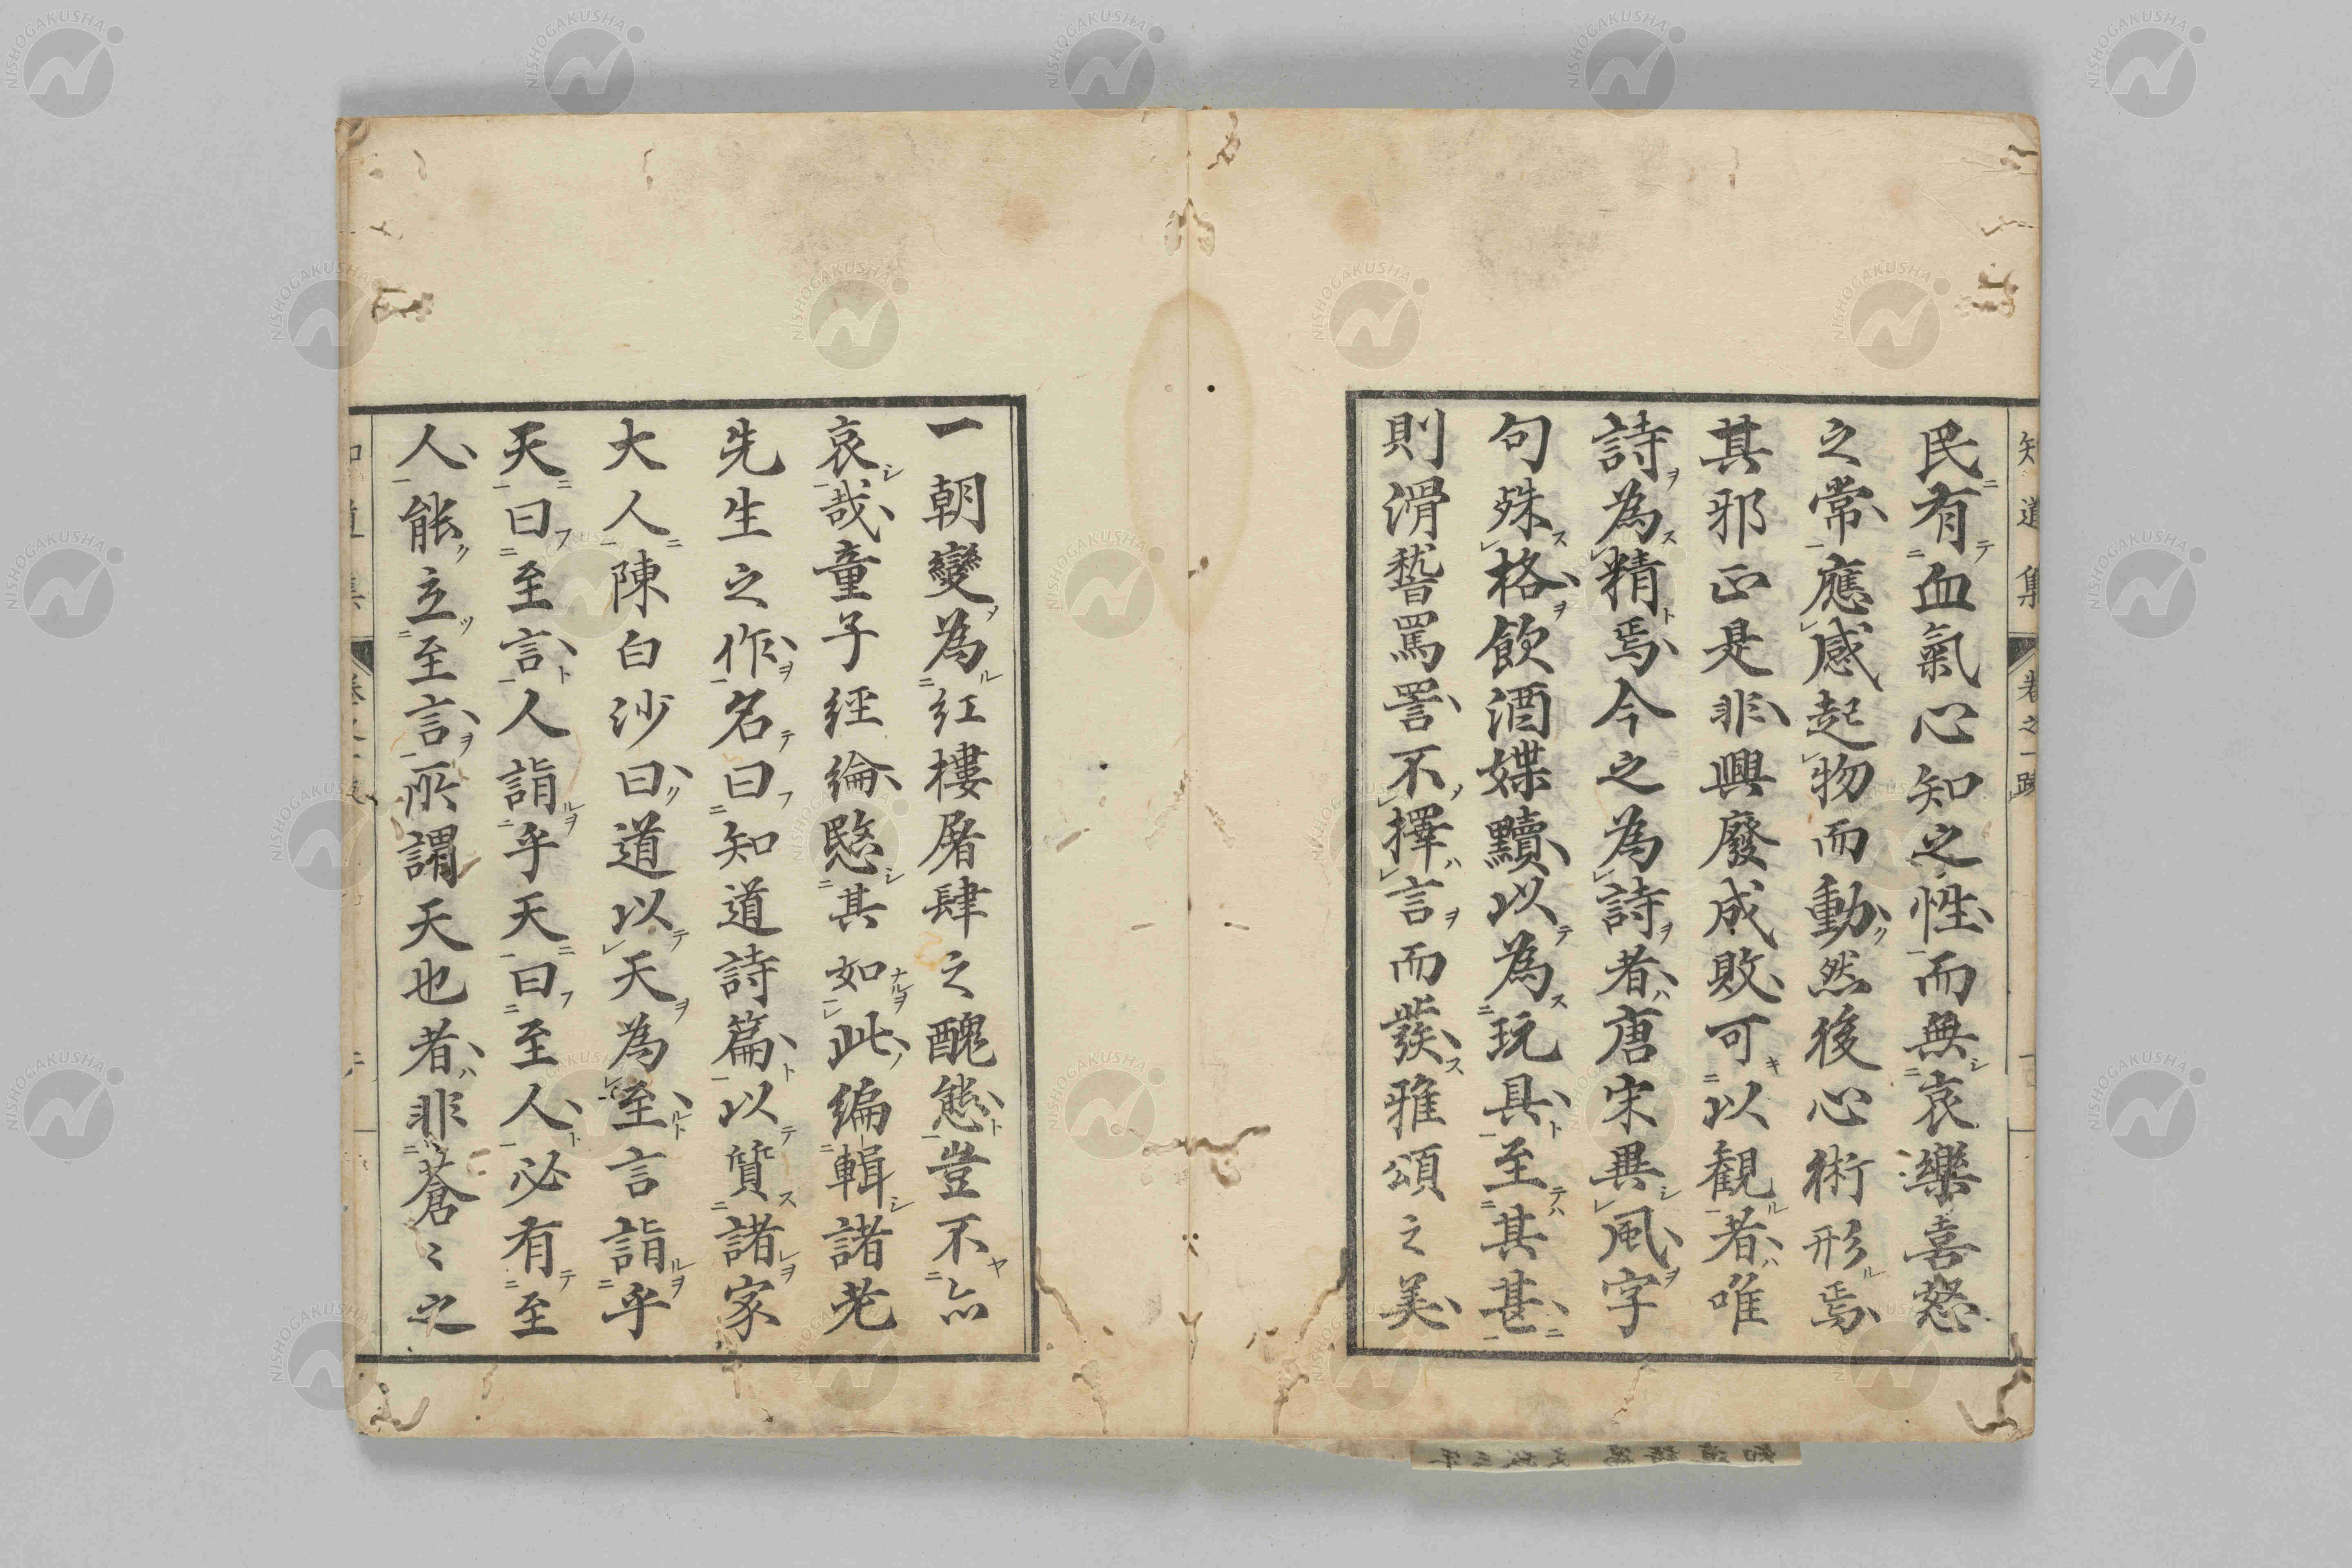 知道集 卷之一 跋
民有血氣心知之性而無哀樂喜怒
之常應感起物而動然後心術形焉
其邪正是非興廢成敗可以觀者唯
詩為精焉今之為詩者唐宋異風字
句殊格飲酒媟黷以為玩具至其甚
則滑稽罵詈不擇言而發雅頌之美
一朝變為紅樓屠肆之醜態豈不亦
哀哉童子經綸愍其如此編輯諸老
先生之作名曰知道詩篇以質諸家
大人陳白沙曰道以天為至言詣乎
天曰至言人詣乎天曰至人必有至
人能立至言所謂天也者非蒼〻之
NISHOGAKUSHA